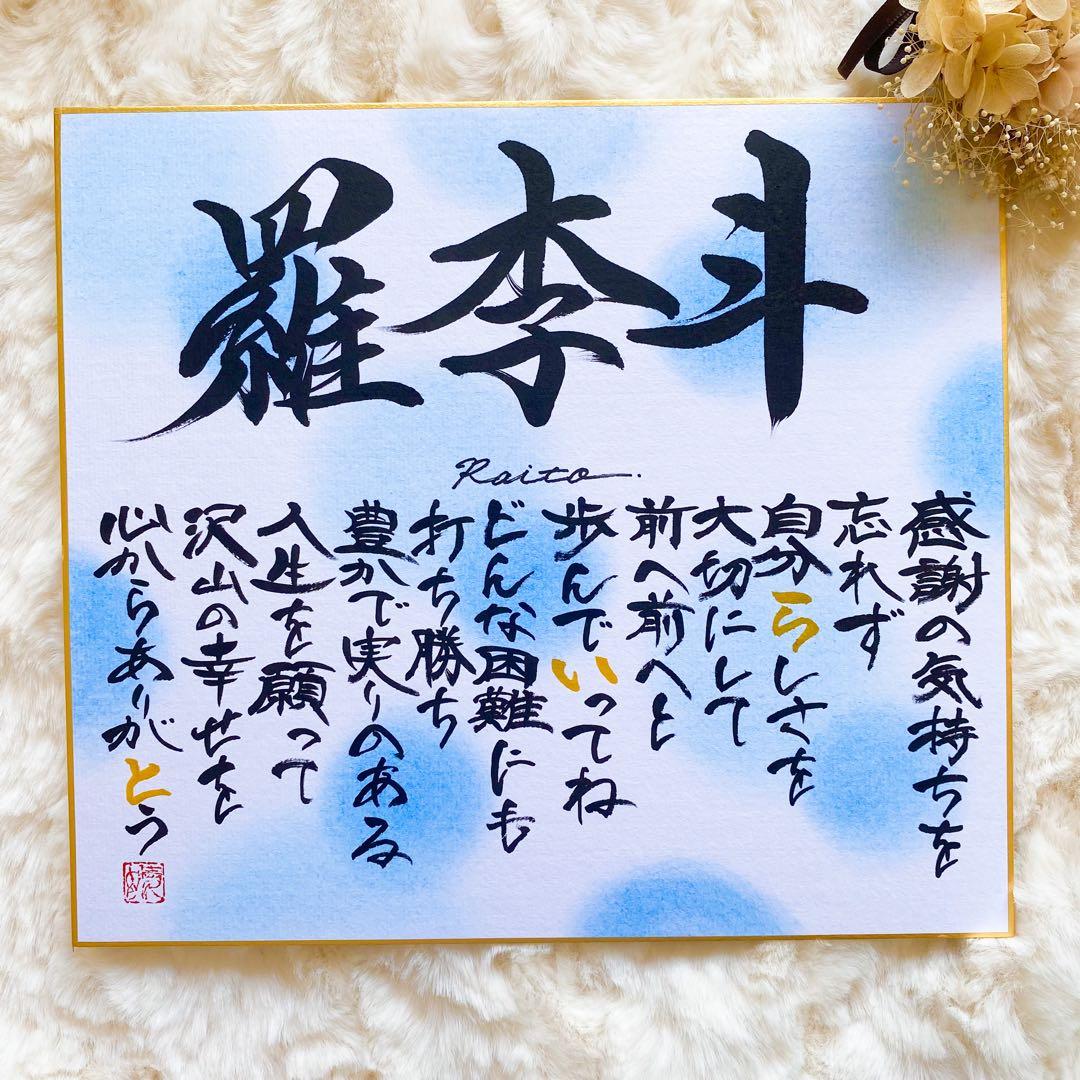 羅李斗
Raito
感謝の気持ちを
忘れず
自分らしさを
大切にして
前へ前へと
歩んでいってね
どんな困難にも
打ち勝ち
豊かで実りのある
人生を願って
沢山の幸せを
心からありがとう